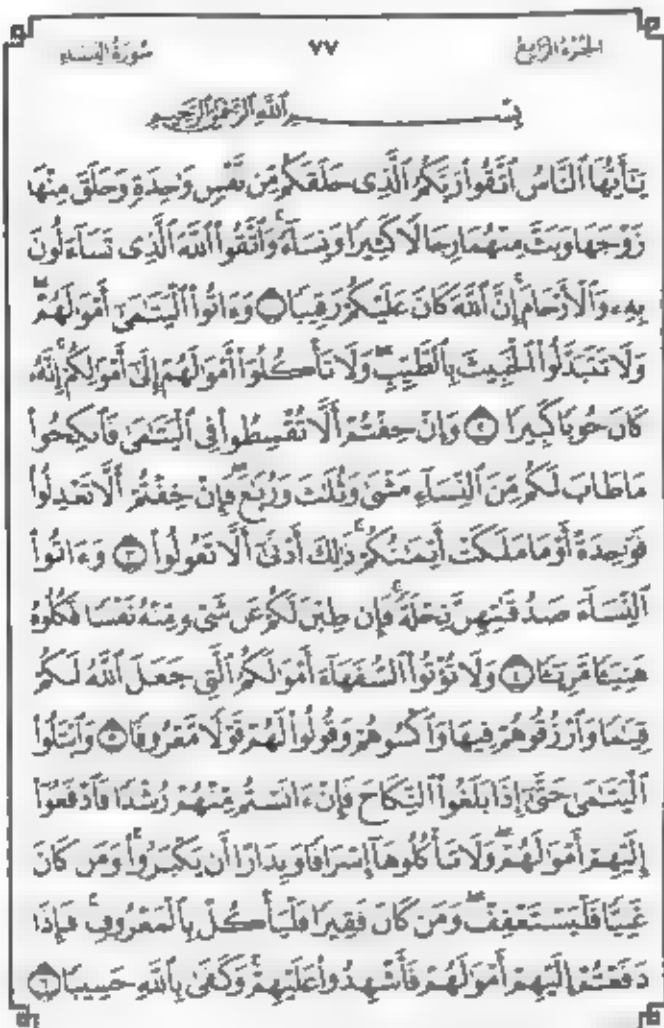 سُورَةُ النِّسَاءِ ٧٧ الجُزْءُ الرَّابِعُ
بِسْمِ ٱللَّهِ ٱلرَّحْمَٰنِ ٱلرَّحِيمِ
يَٰٓأَيُّهَا ٱلنَّاسُ ٱتَّقُوا۟ رَبَّكُمُ ٱلَّذِى خَلَقَكُم مِّن نَّفْسٍ وَٰحِدَةٍ وَخَلَقَ مِنْهَا
زَوْجَهَا وَبَثَّ مِنْهُمَا رِجَالًا كَثِيرًا وَنِسَآءً ۚ وَٱتَّقُوا۟ ٱللَّهَ ٱلَّذِى تَسَآءَلُونَ
بِهِۦ وَٱلْأَرْحَامَ ۚ إِنَّ ٱللَّهَ كَانَ عَلَيْكُمْ رَقِيبًا ١ وَءَاتُوا۟ ٱلْيَتَٰمَىٰٓ أَمْوَٰلَهُمْ ۖ
وَلَا تَتَبَدَّلُوا۟ ٱلْخَبِيثَ بِٱلطَّيِّبِ ۖ وَلَا تَأْكُلُوٓا۟ أَمْوَٰلَهُمْ إِلَىٰٓ أَمْوَٰلِكُمْ ۚ إِنَّهُۥ
كَانَ حُوبًا كَبِيرًا ٢ وَإِنْ خِفْتُمْ أَلَّا تُقْسِطُوا۟ فِى ٱلْيَتَٰمَىٰ فَٱنكِحُوا۟
مَا طَابَ لَكُم مِّنَ ٱلنِّسَآءِ مَثْنَىٰ وَثُلَٰثَ وَرُبَٰعَ ۖ فَإِنْ خِفْتُمْ أَلَّا تَعْدِلُوا۟
فَوَٰحِدَةً أَوْ مَا مَلَكَتْ أَيْمَٰنُكُمْ ۚ ذَٰلِكَ أَدْنَىٰٓ أَلَّا تَعُولُوا۟ ٣ وَءَاتُوا۟
ٱلنِّسَآءَ صَدُقَٰتِهِنَّ نِحْلَةً ۚ فَإِن طِبْنَ لَكُمْ عَن شَىْءٍ مِّنْهُ نَفْسًا فَكُلُوهُ
هَنِيٓـًٔا مَّرِيٓـًٔا ٤ وَلَا تُؤْتُوا۟ ٱلسُّفَهَآءَ أَمْوَٰلَكُمُ ٱلَّتِى جَعَلَ ٱللَّهُ لَكُمْ
قِيَٰمًا وَٱرْزُقُوهُمْ فِيهَا وَٱكْسُوهُمْ وَقُولُوا۟ لَهُمْ قَوْلًا مَّعْرُوفًا ٥ وَٱبْتَلُوا۟
ٱلْيَتَٰمَىٰ حَتَّىٰٓ إِذَا بَلَغُوا۟ ٱلنِّكَاحَ فَإِنْ ءَانَسْتُم مِّنْهُمْ رُشْدًا فَٱدْفَعُوٓا۟
إِلَيْهِمْ أَمْوَٰلَهُمْ ۖ وَلَا تَأْكُلُوهَآ إِسْرَافًا وَبِدَارًا أَن يَكْبَرُوا۟ ۚ وَمَن كَانَ
غَنِيًّا فَلْيَسْتَعْفِفْ ۖ وَمَن كَانَ فَقِيرًا فَلْيَأْكُلْ بِٱلْمَعْرُوفِ ۚ فَإِذَا
دَفَعْتُمْ إِلَيْهِمْ أَمْوَٰلَهُمْ فَأَشْهِدُوا۟ عَلَيْهِمْ ۚ وَكَفَىٰ بِٱللَّهِ حَسِيبًا ٦